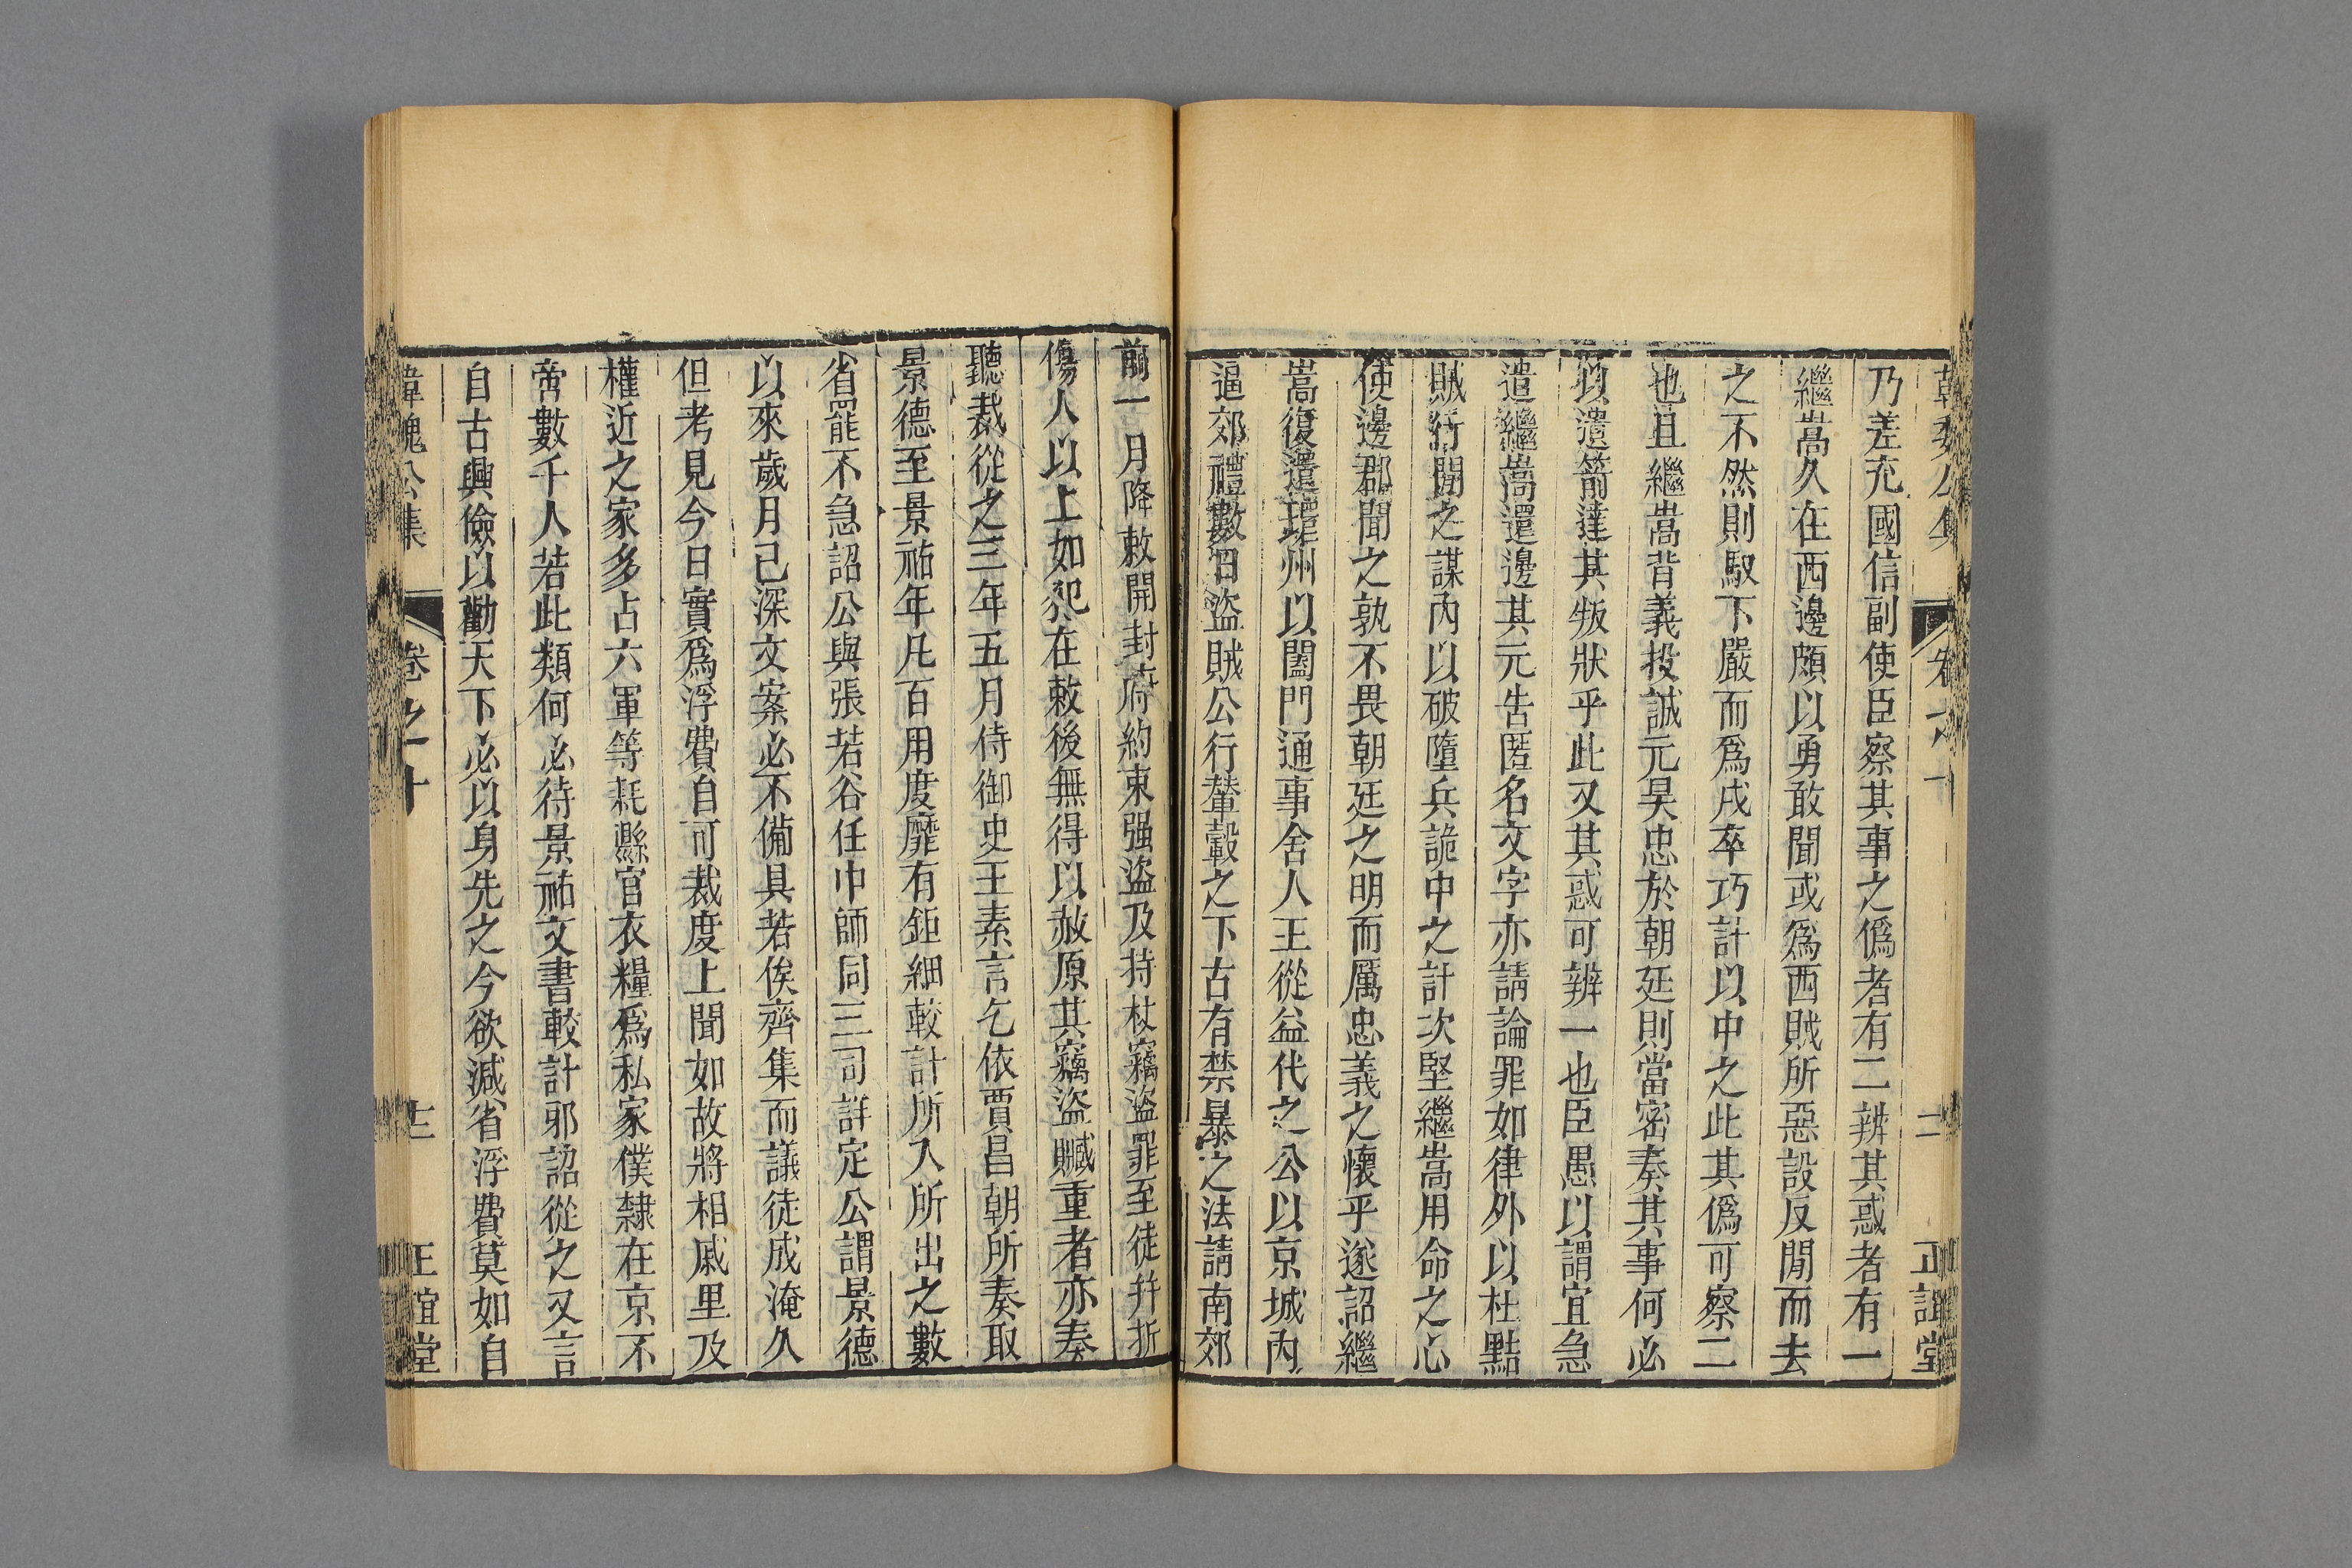 乃差充國信副使臣察其事之僞者有二辨其惑者有一
繼嵩久在西邊頗以勇敢聞或爲西賊所惡設反間而去
之不然則馭下嚴而爲戍卒巧計以中之此其僞可察二
也且繼嵩背義投誠元昊忠於朝廷則當密奏其事何必
以遣箭達其叛狀乎此又其惑可辨一也臣愚以謂宜急
遣繼嵩還邊其元告匿名文字亦請論罪如律外以杜黠
賊行間之謀內以破墮兵詭中之計次堅繼嵩用命之心
使邊郡聞之孰不畏朝廷之明而厲忠義之懷乎遂詔繼
嵩復還環州以閤門通事舍人王從益代之公以京城內
逼郊禮數日盜賊公行輦轂之下古有禁暴之法請南郊
前一月降敕開封府約束强盜及持杖竊盜罪至徒幷折
傷人以上如犯在敕後無得以赦原其竊盜贓重者亦奏
聽裁從之三年五月侍御史王素言乞依賈昌朝所奏取
景德至景祐年凡百用度靡有鉅細較計所入所出之數
省罷不急詔公與張若谷任中師同三司詳定公謂景德
以來歲月已深文案必不備具若俟齊集而議徒成淹久
但考見今日實爲浮費自可裁度上聞如故將相戚里及
權近之家多占六軍等耗縣官衣糧爲私家僕隸在京不
啻數千人若此類何必待景祐文書較計邪詔從之又言
自古興儉以勸天下必以身先之今欲減省浮費莫如自
韓魏公集
卷之十
十二
正誼堂